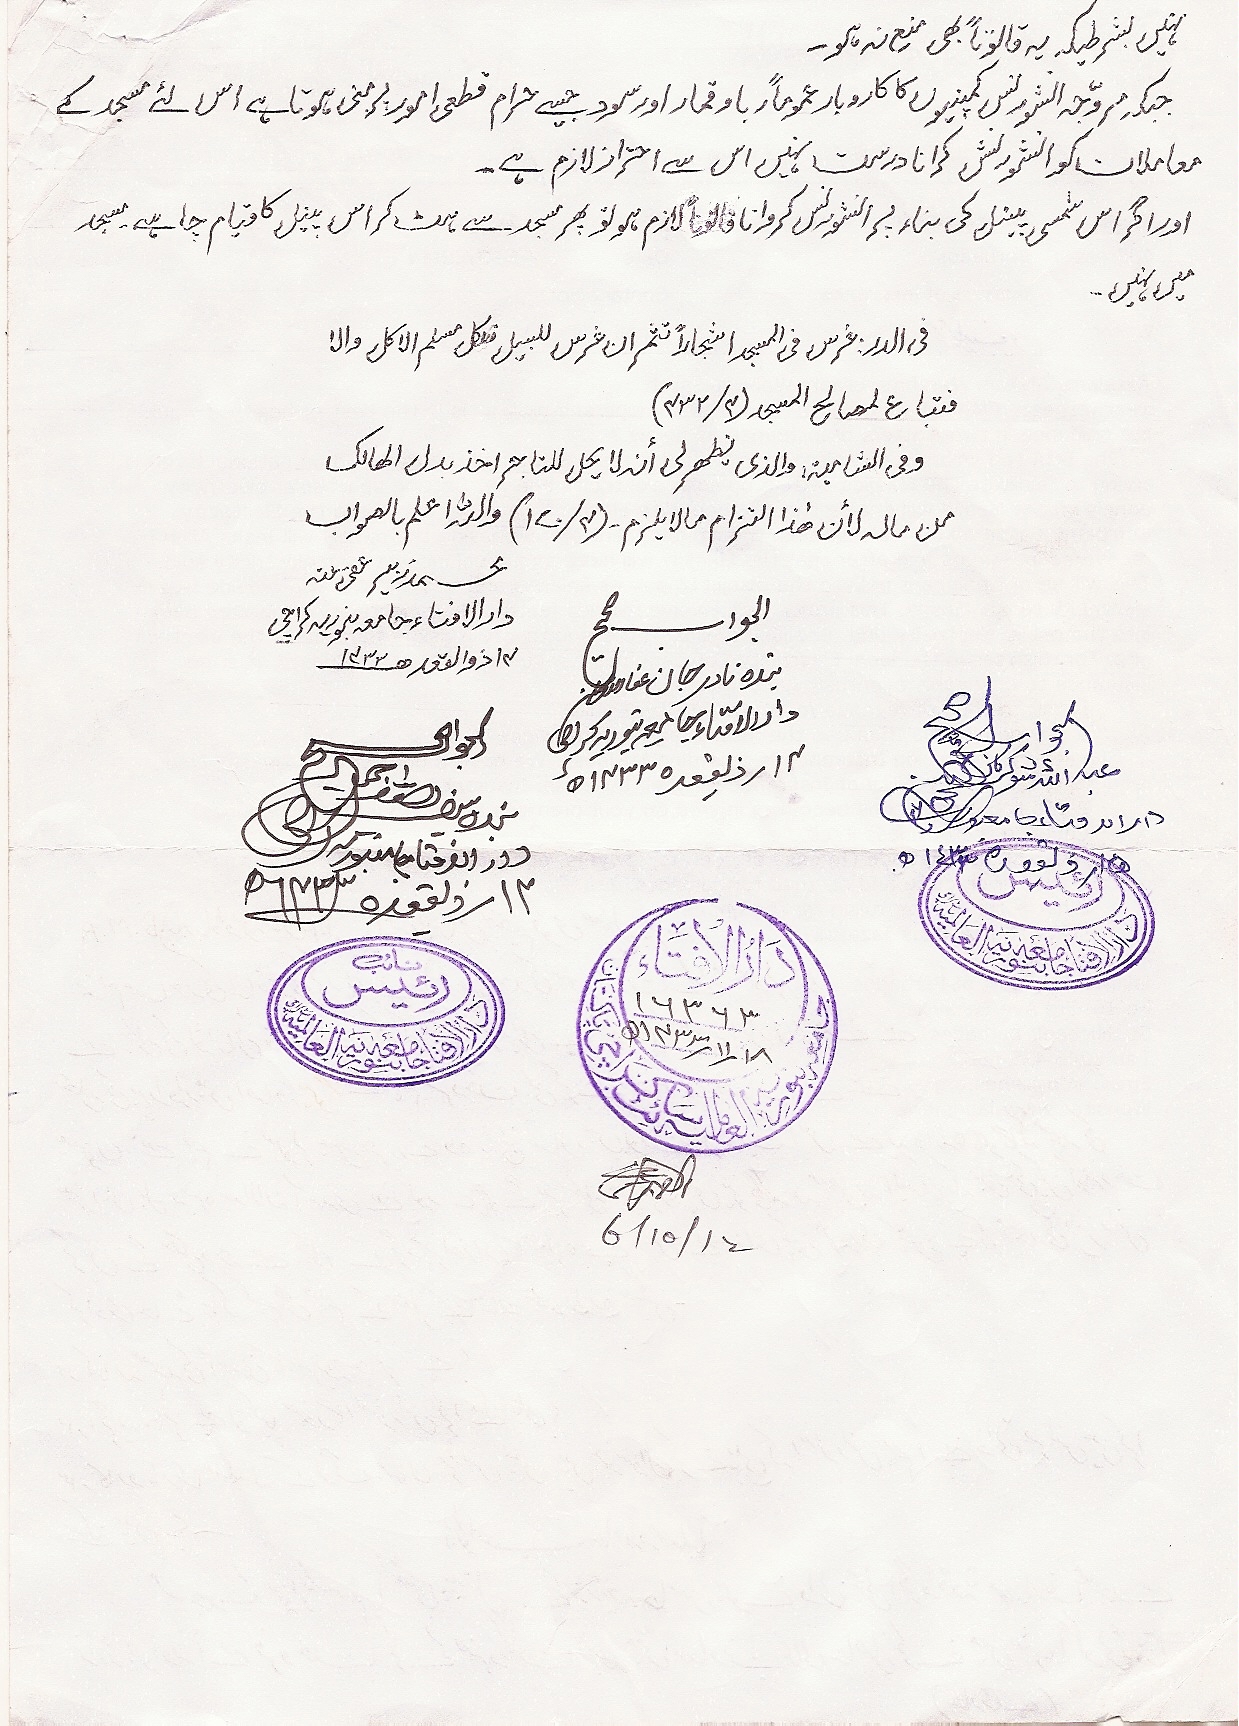 نہیں بشرطیکہ یہ قانوناً بھی منع نہ ہو۔
جبکہ مروّجہ انشورنس کمپنیوں کا کاروبار عموماً ربا و قمار اور سود جیسے حرام قطعی امور پر مبنی ہوتا ہے اس لئے مسجد کے
معاملات کو انشورنش کرانا درست نہیں اس سے احتراز لازم ہے۔
اور اگر اس شمسی پینل کی بناء پر انشورنس کروانا قانوناً لازم ہو تو پھر مسجد سے ہٹ کر اس پینل کا قیام چاہیے۔ مسجد
میں نہیں۔
فی الدر: غرس فی المسجد اشجاراً تثمر ان غرس للسبیل فلکل مسلم الاکل والا
فتباع لمصالح المسجد (۴/۴۳۲)
وفی الشامیۃ: والذی یظھر لی أنہ لا یحل للتاجر اخذ بدل الھالک
من مالہ لأن ھٰذا التزام مالا یلزم۔ (۴/۱۷۰) واللہ اعلم بالصواب
محمد زبیر عفی عنہ
دارالافتاء جامعہ بنوریہ کراچی
۱۴ ذوالقعدہ ۱۴۳۳ھ
الجواب صحیح
بندہ نادر جان عفا اللہ عنہ
دارالافتاء جامعہ بنوریہ کراچی
۱۴ / ذیقعدہ ۱۴۳۳ھ
الجواب صحیح
بندہ سیف اللہ جمیل
دارالافتاء جامعہ بنوریہ
۱۴ / ذیقعدہ ۱۴۳۳ھ
الجواب صحیح
عبد اللہ شوکت
دارالافتاء جامعہ بنوریہ
ذیقعدہ ۱۴۳۳ھ
رئیس
دارالافتاء جامعہ بنوریہ العالمیۃ
نائب
رئیس
دارالافتاء جامعہ بنوریہ العالمیۃ
دار الافتاء
۱۶۳۶۳
۱۸/۱۱/۱۴۳۳ھ
جامعہ بنوریہ العالمیہ سائٹ کراچی پاکستان
6/10/12